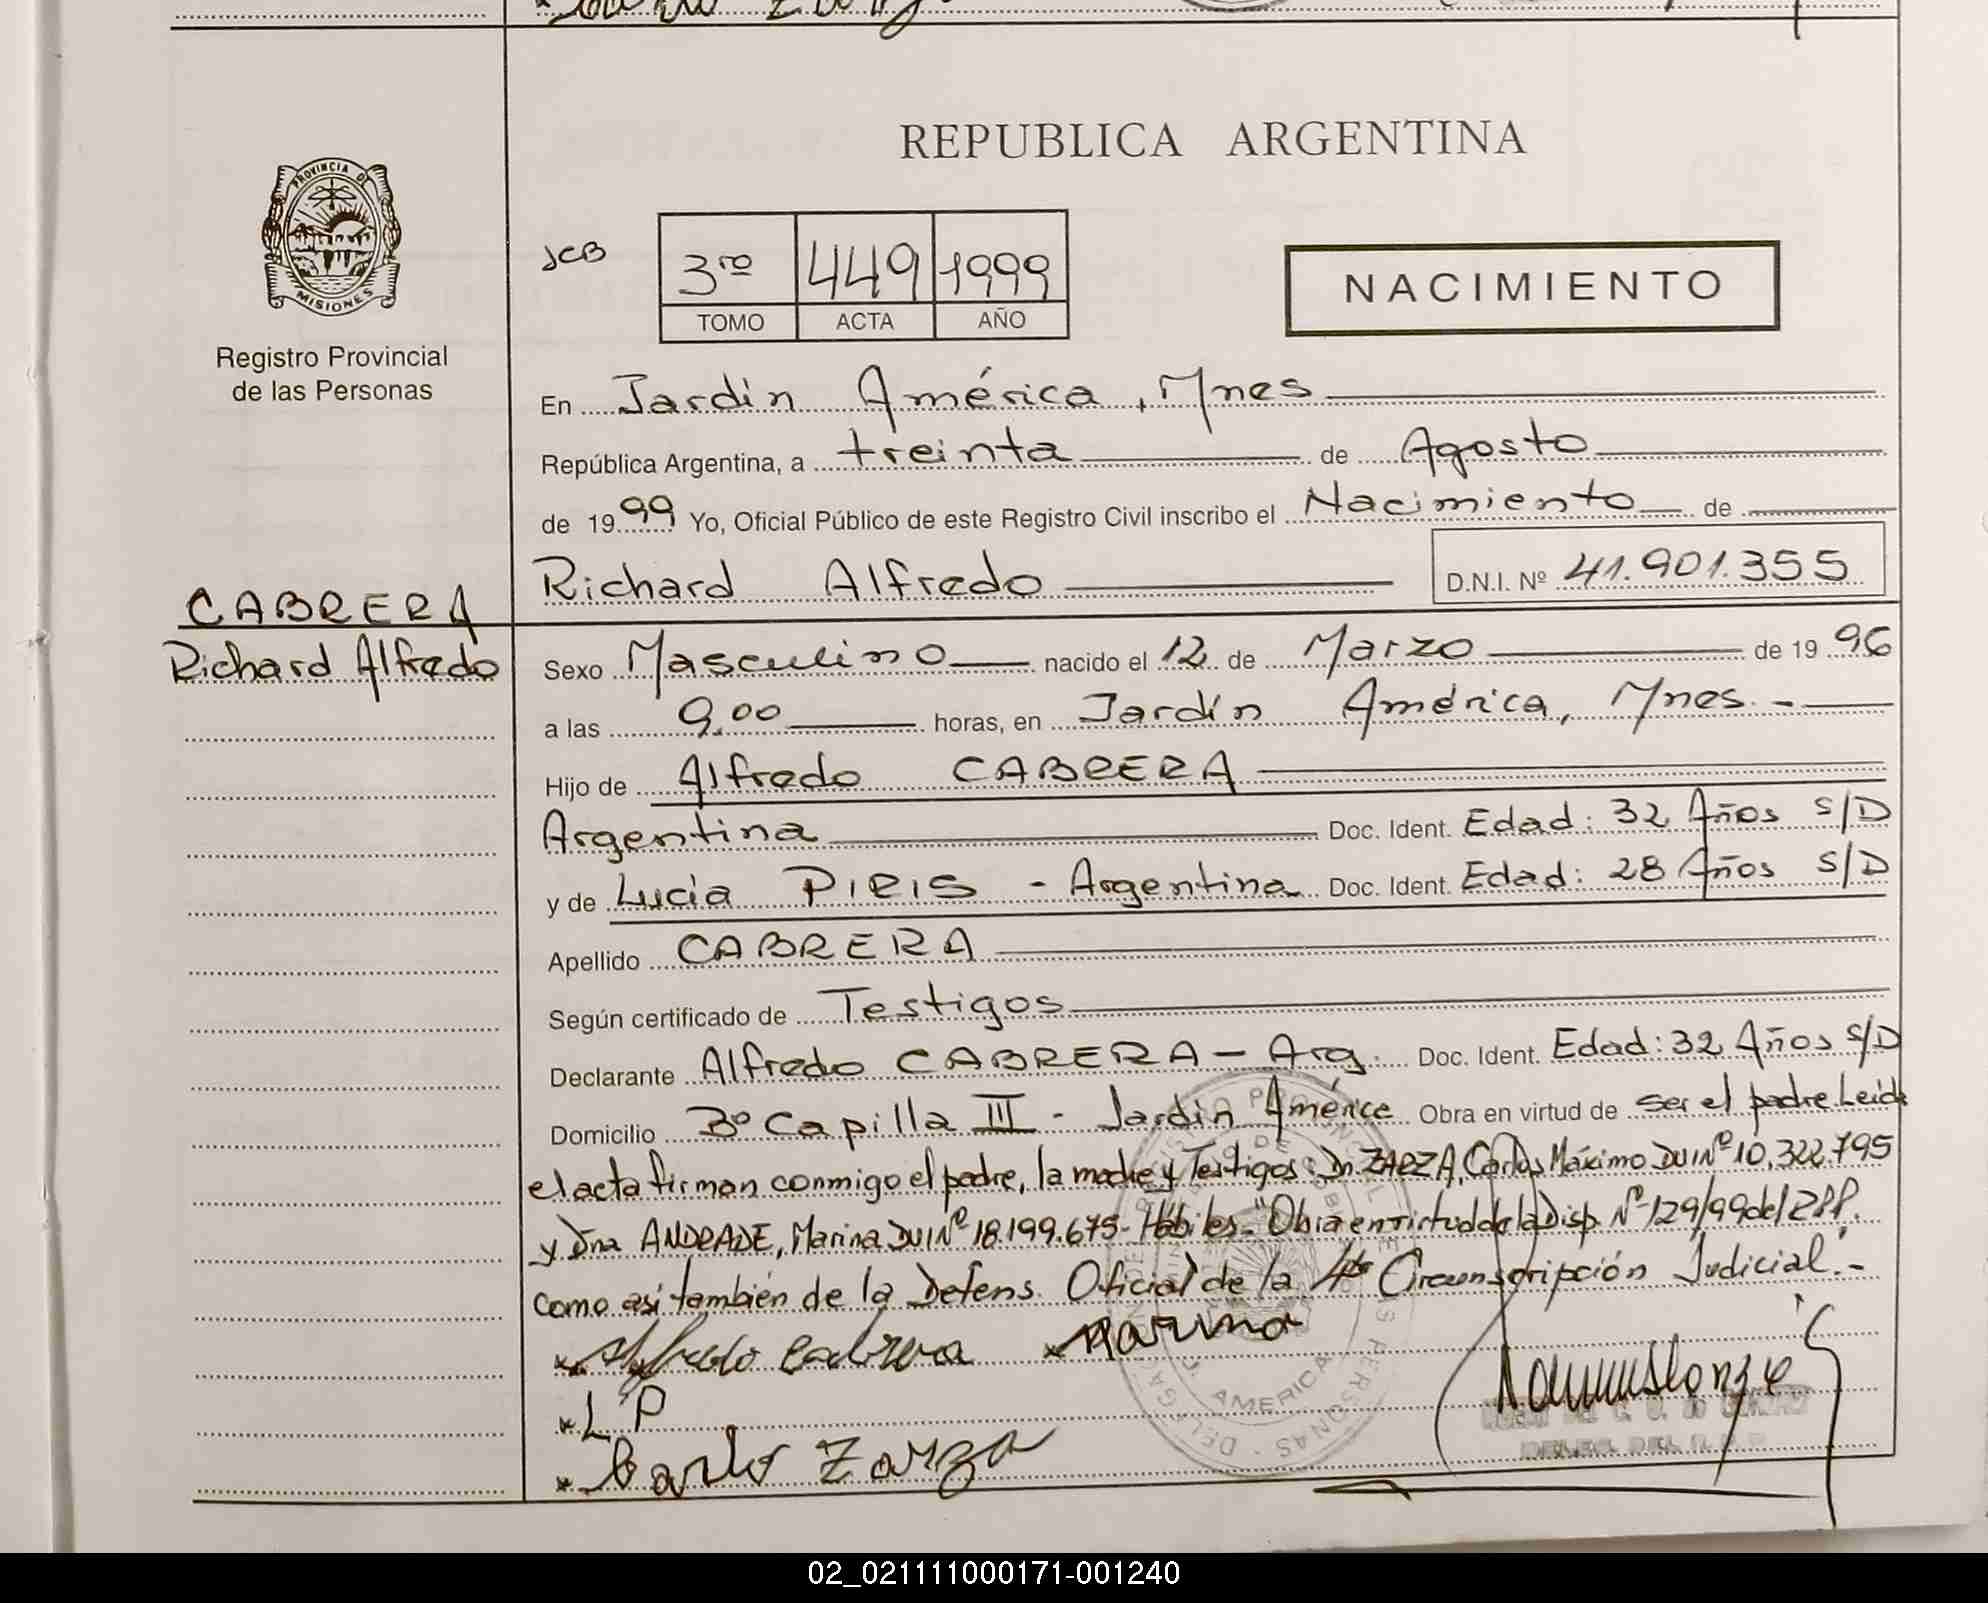 REPUBLICA ARGENTINA
PROVINCIA DE
MISIONES
Registro Provincial
de las Personas
JCB
3ro 449 1999
TOMO ACTA AÑO
NACIMIENTO
En Jardín América, Mnes
República Argentina, a treinta de Agosto
de 1999 Yo, Oficial Público de este Registro Civil inscribo el Nacimiento de
Richard Alfredo D.N.I. Nº 41.901.355
CABRERA
Richard Alfredo
Sexo Masculino nacido el 12 de Marzo de 1996
a las 9,00 horas, en Jardín América, Mnes. -
Hijo de Alfredo CABRERA
Argentina Doc. Ident. Edad: 32 Años S/D
y de Lucia PIRIS - Argentina Doc. Ident. Edad: 28 Años S/D
Apellido CABRERA
Según certificado de Testigos
Declarante Alfredo CABRERA - Arg. Doc. Ident. Edad: 32 Años S/D
Domicilio Bº Capilla III - Jardín América Obra en virtud de ser el padre. Leida
el acta firman conmigo el padre, la madre y Testigos: Dn. ZARZA, Carlos Máximo DUI Nº 10.322.795
y Dna ANDRADE, Marina DUI Nº 18.199.675 - Hábiles - "Obra en virtud de la Disp. Nº 129/99 del
como así también de la Defens. Oficial de la 4ta Circunscripción Judicial". -
Alfredo Cabrera Marina
L P
Carlos Zarza
J. AMERICA
02_021111000171-001240